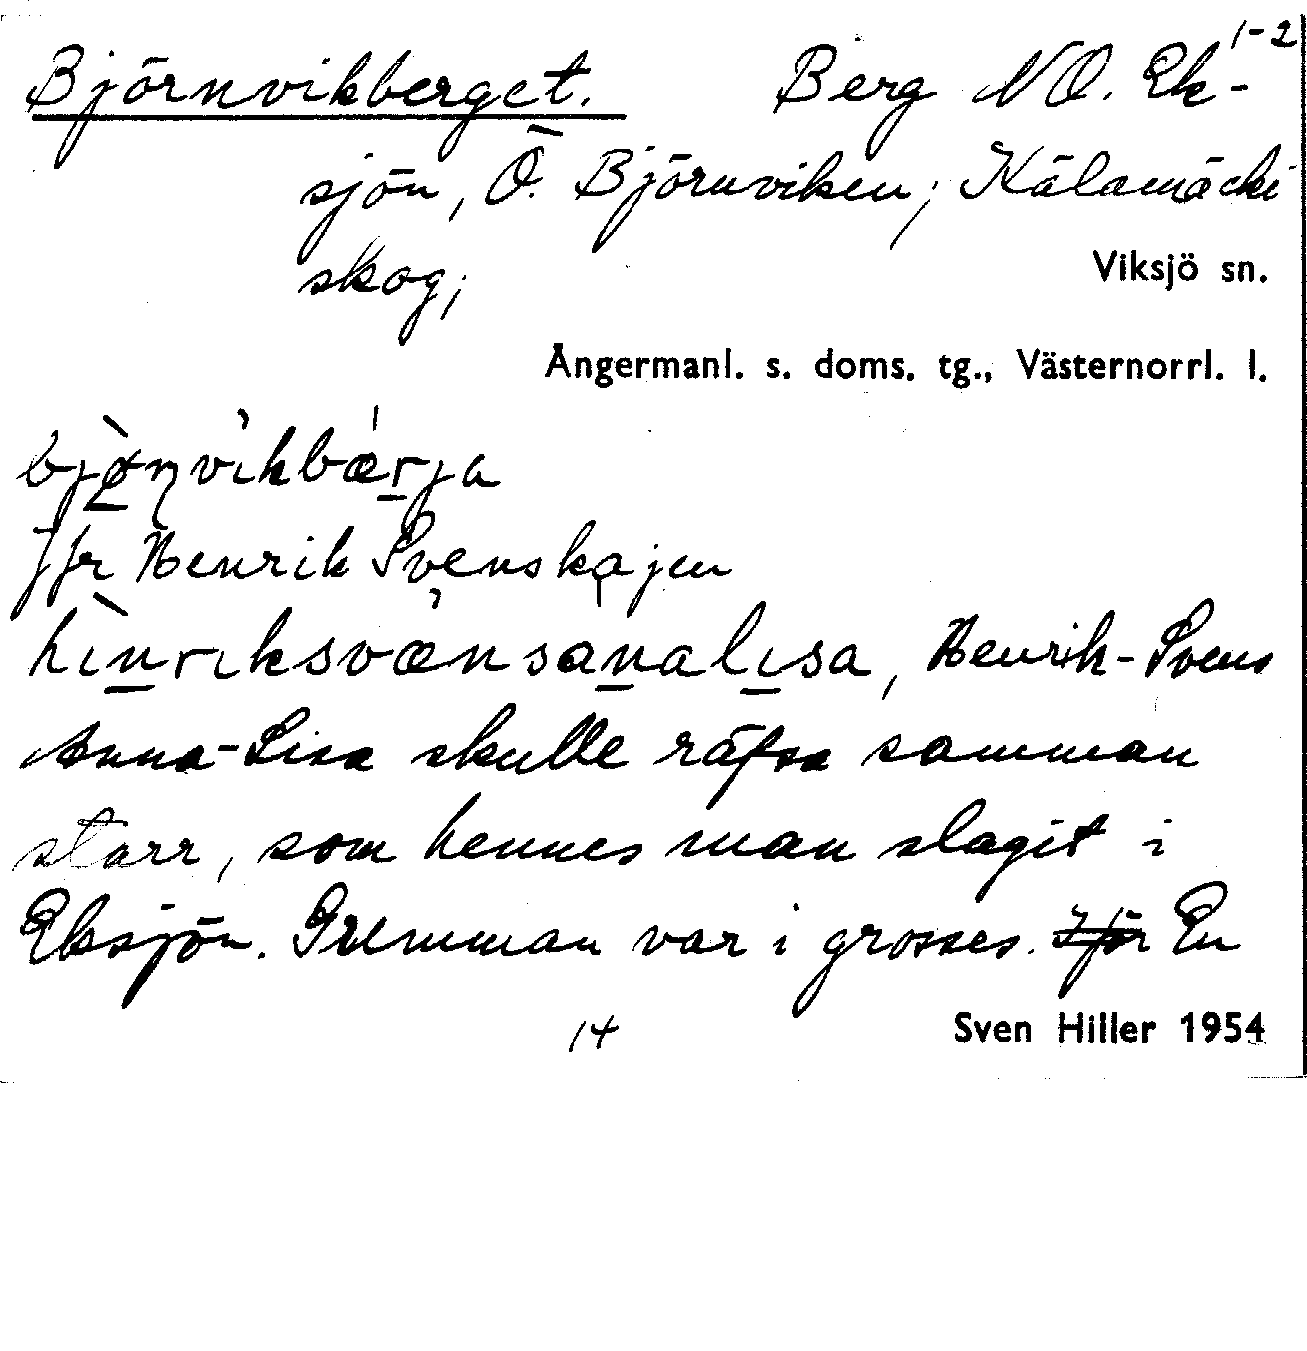 1-2
Björnvikberget. Berg NO. Ek-
sjön, Ö. Björnviken; Kälamäcki
skog; Viksjö sn.
Ångermanl. s. doms. tg., Västernorrl. l.
bjønvikbærja
jfr Henrik Svenskajen
hinriksvænsanalisa, Henrik-Svens
Anna-Lisa skulle räfsa samman
starr, som hennes man slagit i
Eksjön. Gumman var i grosses. En
14 Sven Hiller 1954